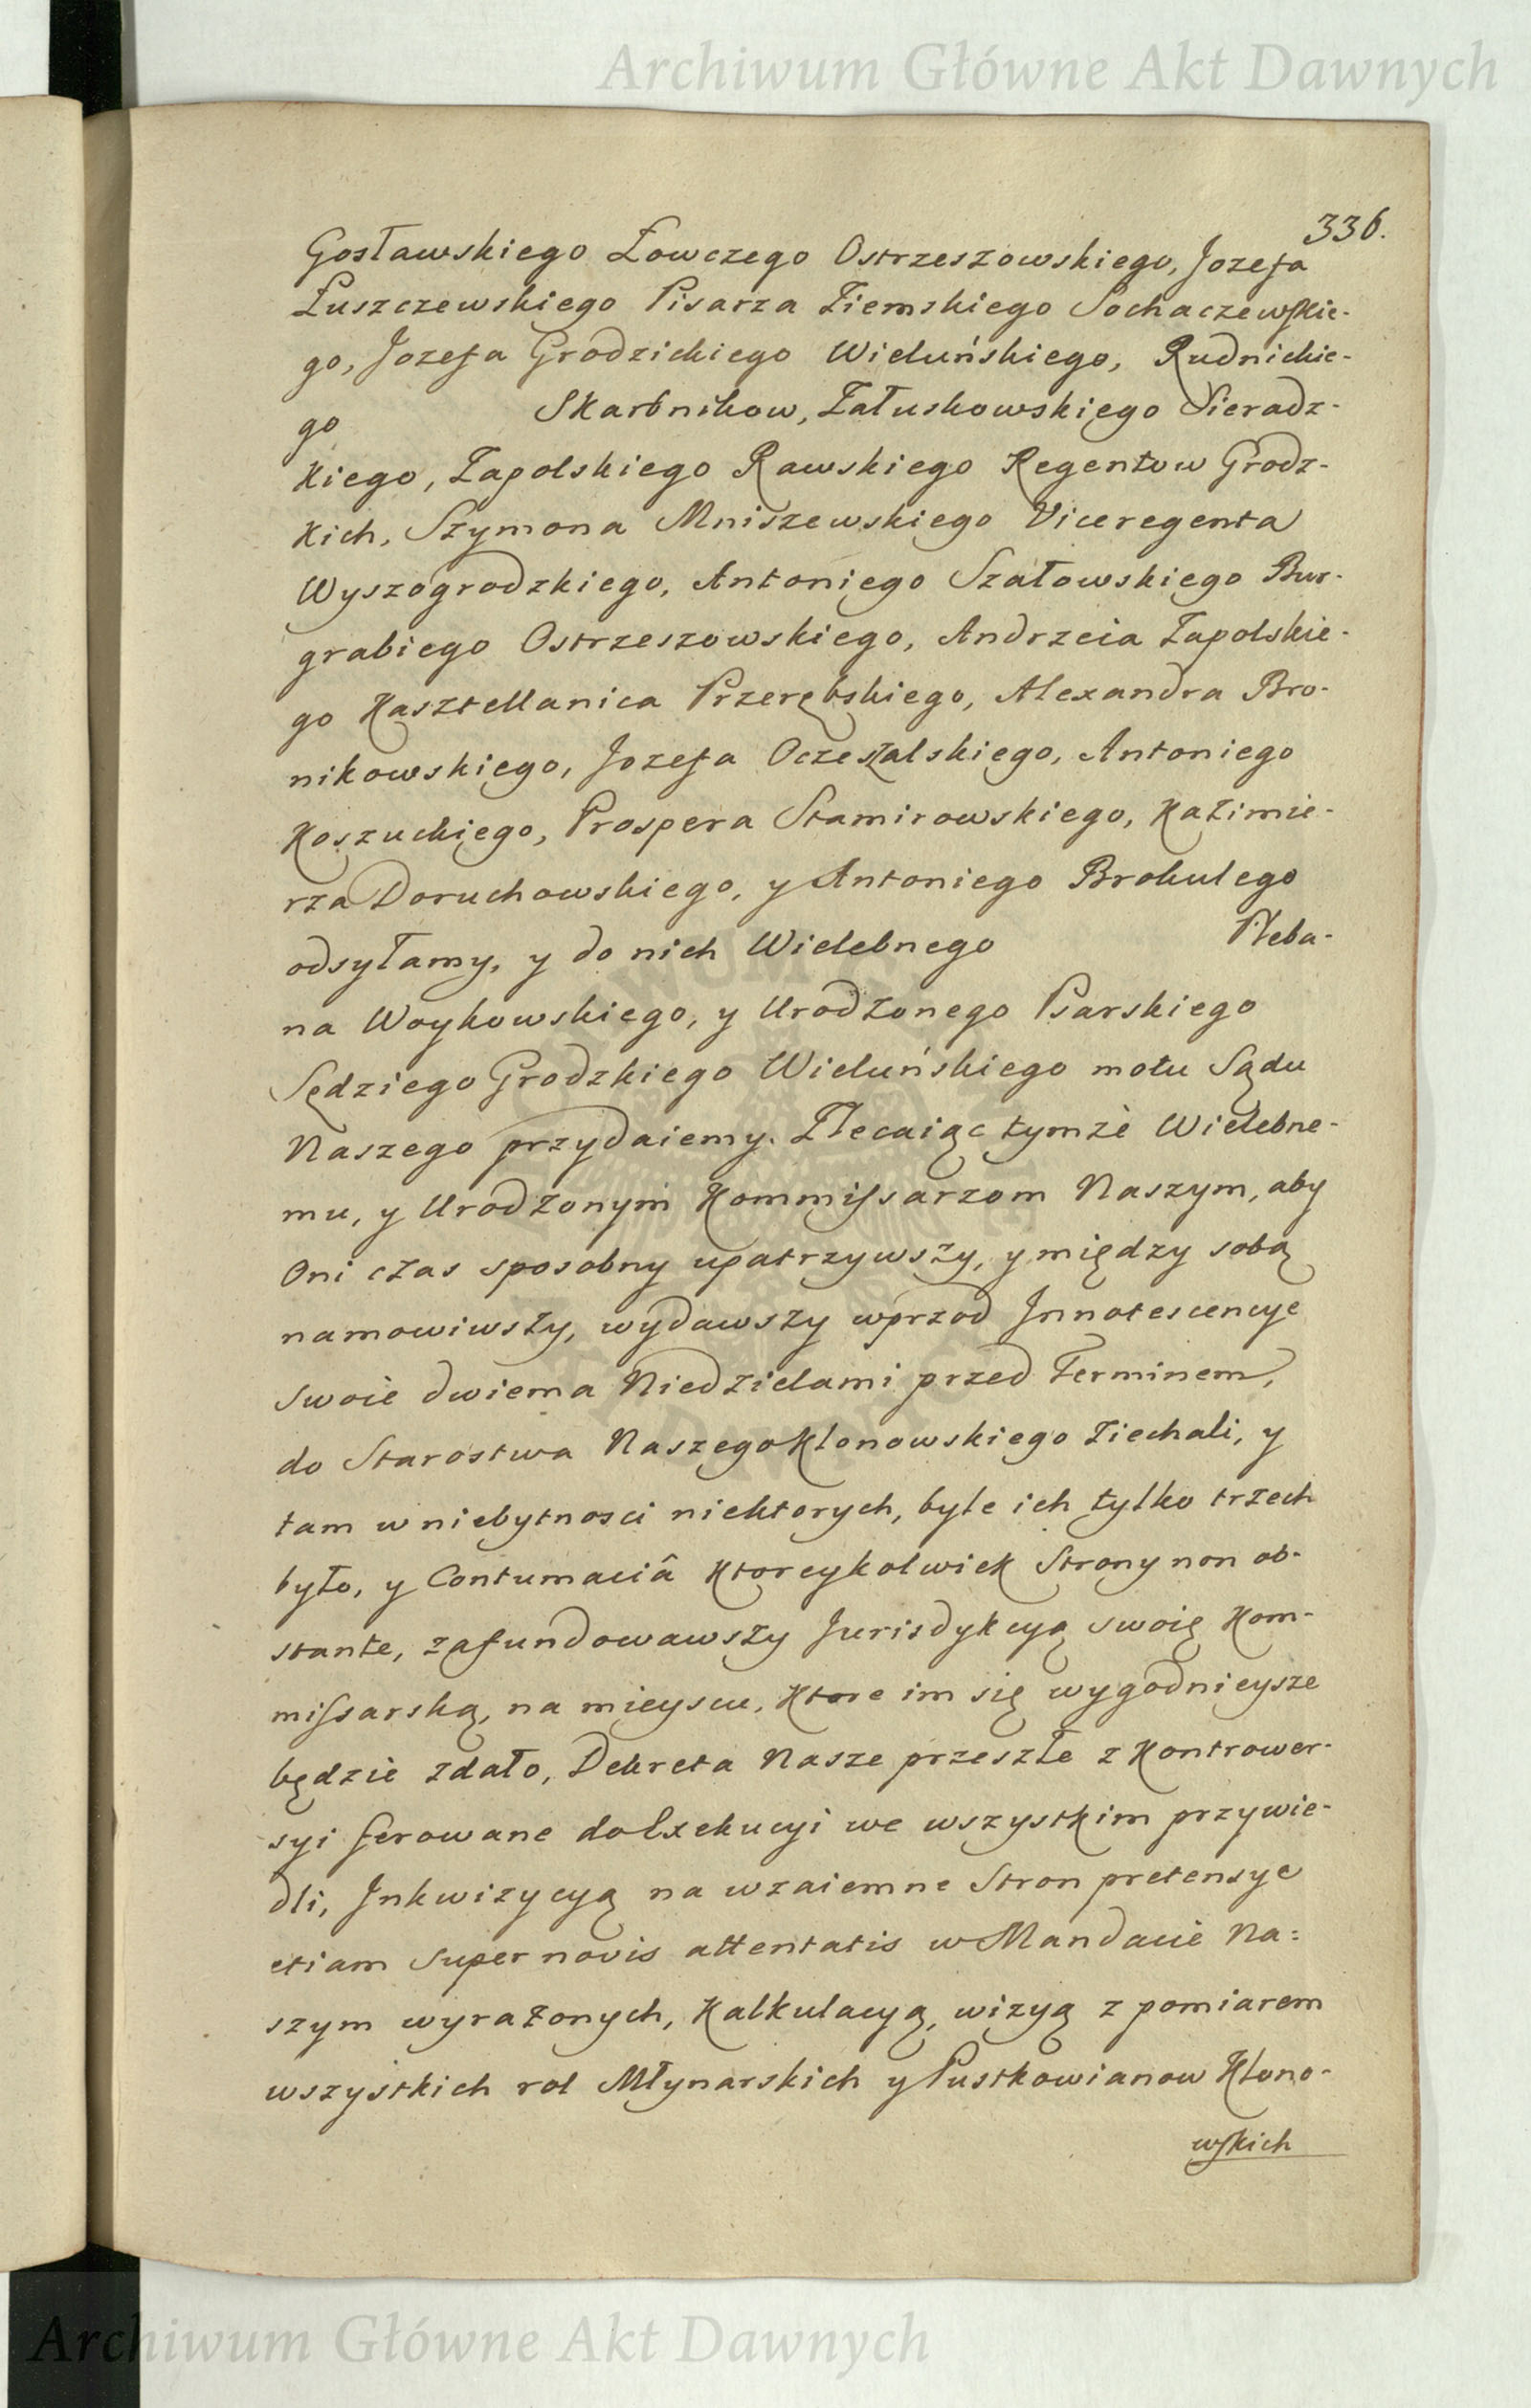 Archiwum Główne Akt Dawnych
336.
Gosławskiego Łowczego Ostrzeszowskiego, Jozefa
Łuszczewskiego Pisarza Ziemskiego Sochaczewskie-
go, Jozefa Grodzickiego Wieluńskiego, Rudnickie-
go Skarbnikow, Załuskowskiego Sieradz-
kiego, Zapolskiego Rawskiego Regentow Grodz-
kich, Szymona Mniszewskiego Viceregenta
Wyszogrodzkiego, Antoniego Szałowskiego Bur-
grabiego Ostrzeszowskiego, Andrzeia Zapolskie-
go Kasztellanica Przerębskiego, Alexandra Bro-
nikowskiego, Jozefa Oczeszalskiego, Antoniego
Koszuckiego, Prospera Stamirowskiego, Kaźimie-
rza Doruchowskiego, y Antoniego Brokulego
odsyłamy, y do nich Wielebnego Pleba-
na Woykowskiego, y Urodzonego Psarskiego
Sędziego Grodzkiego Wieluńskiego motu Sądu
Naszego przydaiemy. Zlecaiąc tymże Wielebne-
mu, y Urodzonym Kommissarzom Naszym, aby
Oni czas sposobny upatrzywszy, y między sobą
namowiwszy, wydawszy wprzod Jnnotescencye
swoie dwiema Niedzielami przed Terminem,
do Starostwa Naszego Klonowskiego ziechali, y
tam w niebytnosci niektorych, byle ich tylko trzech
było, y Contumaciâ ktoreykolwiek Strony non ob-
stante, zafundowawszy Jurisdykcyą swoię Kom-
missarską, na mieyscu, ktore im się wygodnieysze
będzie zdało, Dekreta Nasze przeszłe z Kontrower-
syi ferowane do Exekucyi we wszystkim przywie-
dli, Jnkwizycyą na wzaiemne Stron pretensye
etiam super novis attentatis w Mandacie Na:
szym wyrażonych, Kalkulacyą, wizyą z pomiarem
wszystkich rol Młynarskich y Pustkowianow Klono-
wskich
Archiwum Główne Akt Dawnych